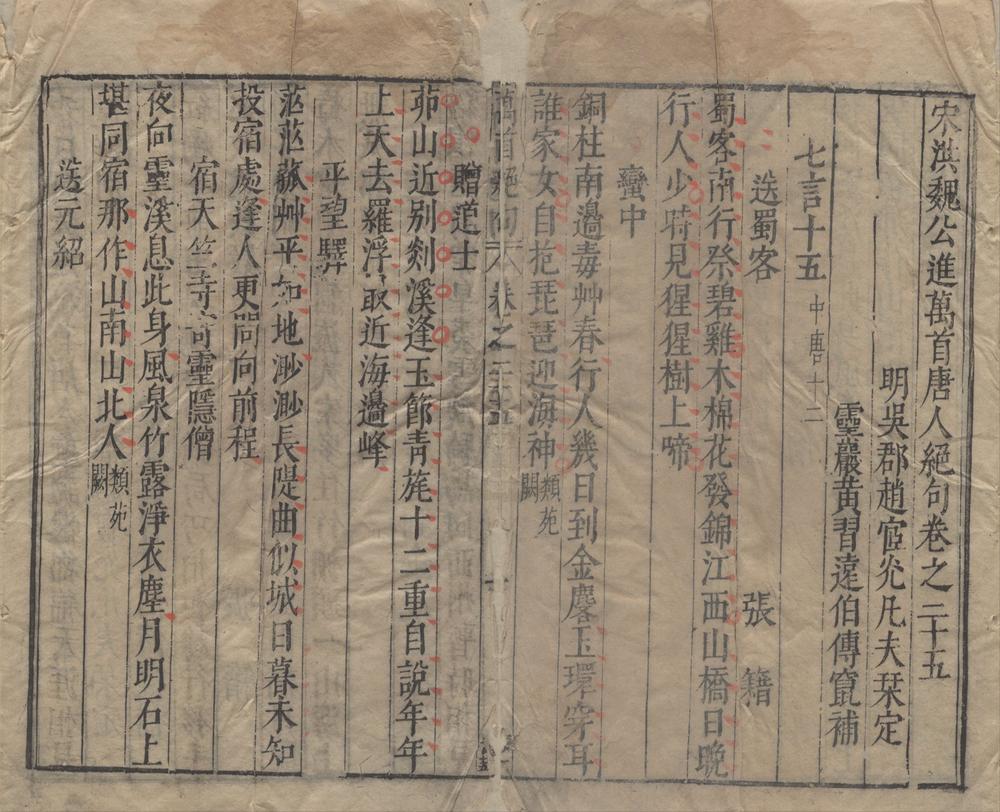 宋洪魏公進萬首唐人絕句卷之二十五
明吳郡趙宦光凡夫栞定
靈巖黄習遠伯傳竄補
七言十五 中唐十二
送蜀客 張籍
蜀客南行祭碧雞木棉花發錦江西山橋日晚
行人少時見猩猩樹上啼
蠻中
銅柱南邊毒艸春行人幾日到金麐玉環穿耳
誰家女自抱琵琶迎海神 類苑闕
萬首絕句 卷之二十五
贈道士
茆山近别剡溪逢玉節青旄十二重自說年年
上天去羅浮取近海邊峰
平望驛
茫茫菰艸平如地渺渺長隄曲似城日暮未知
投宿處逢人更問向前程
宿天竺寺寄靈隱僧
夜向靈溪息此身風泉竹露淨衣塵月明石上
堪同宿那作山南山北人 類苑闕
送元紹